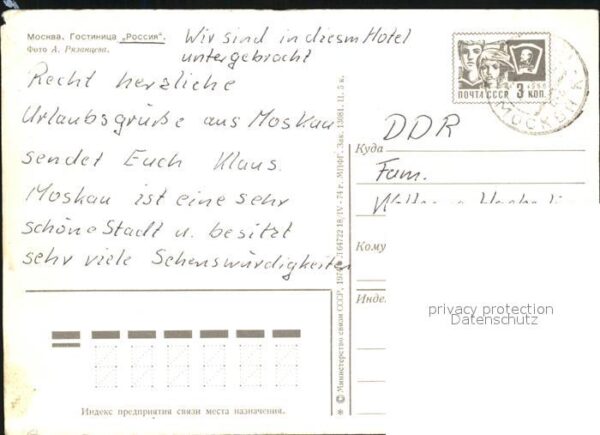 Москва. Гостиница „Россия".
Фото А. Рязанцева.
Wir sind in diesm Hotel
untergebracht
Recht herzliche
Urlaubsgrüße aus Moskau
sendet Euch Klaus.
Moskau ist eine sehr
schöne Stadt u. besitzt
sehr viele Sehenswürdigkeiten
ПОЧТА СССР 3 КОП.
МОСКВА
DDR
Куда
Fam.
Кому
Индекс
privacy protection
Datenschutz
© Министерство связи СССР, 197
Индекс предприятия связи места назначения.